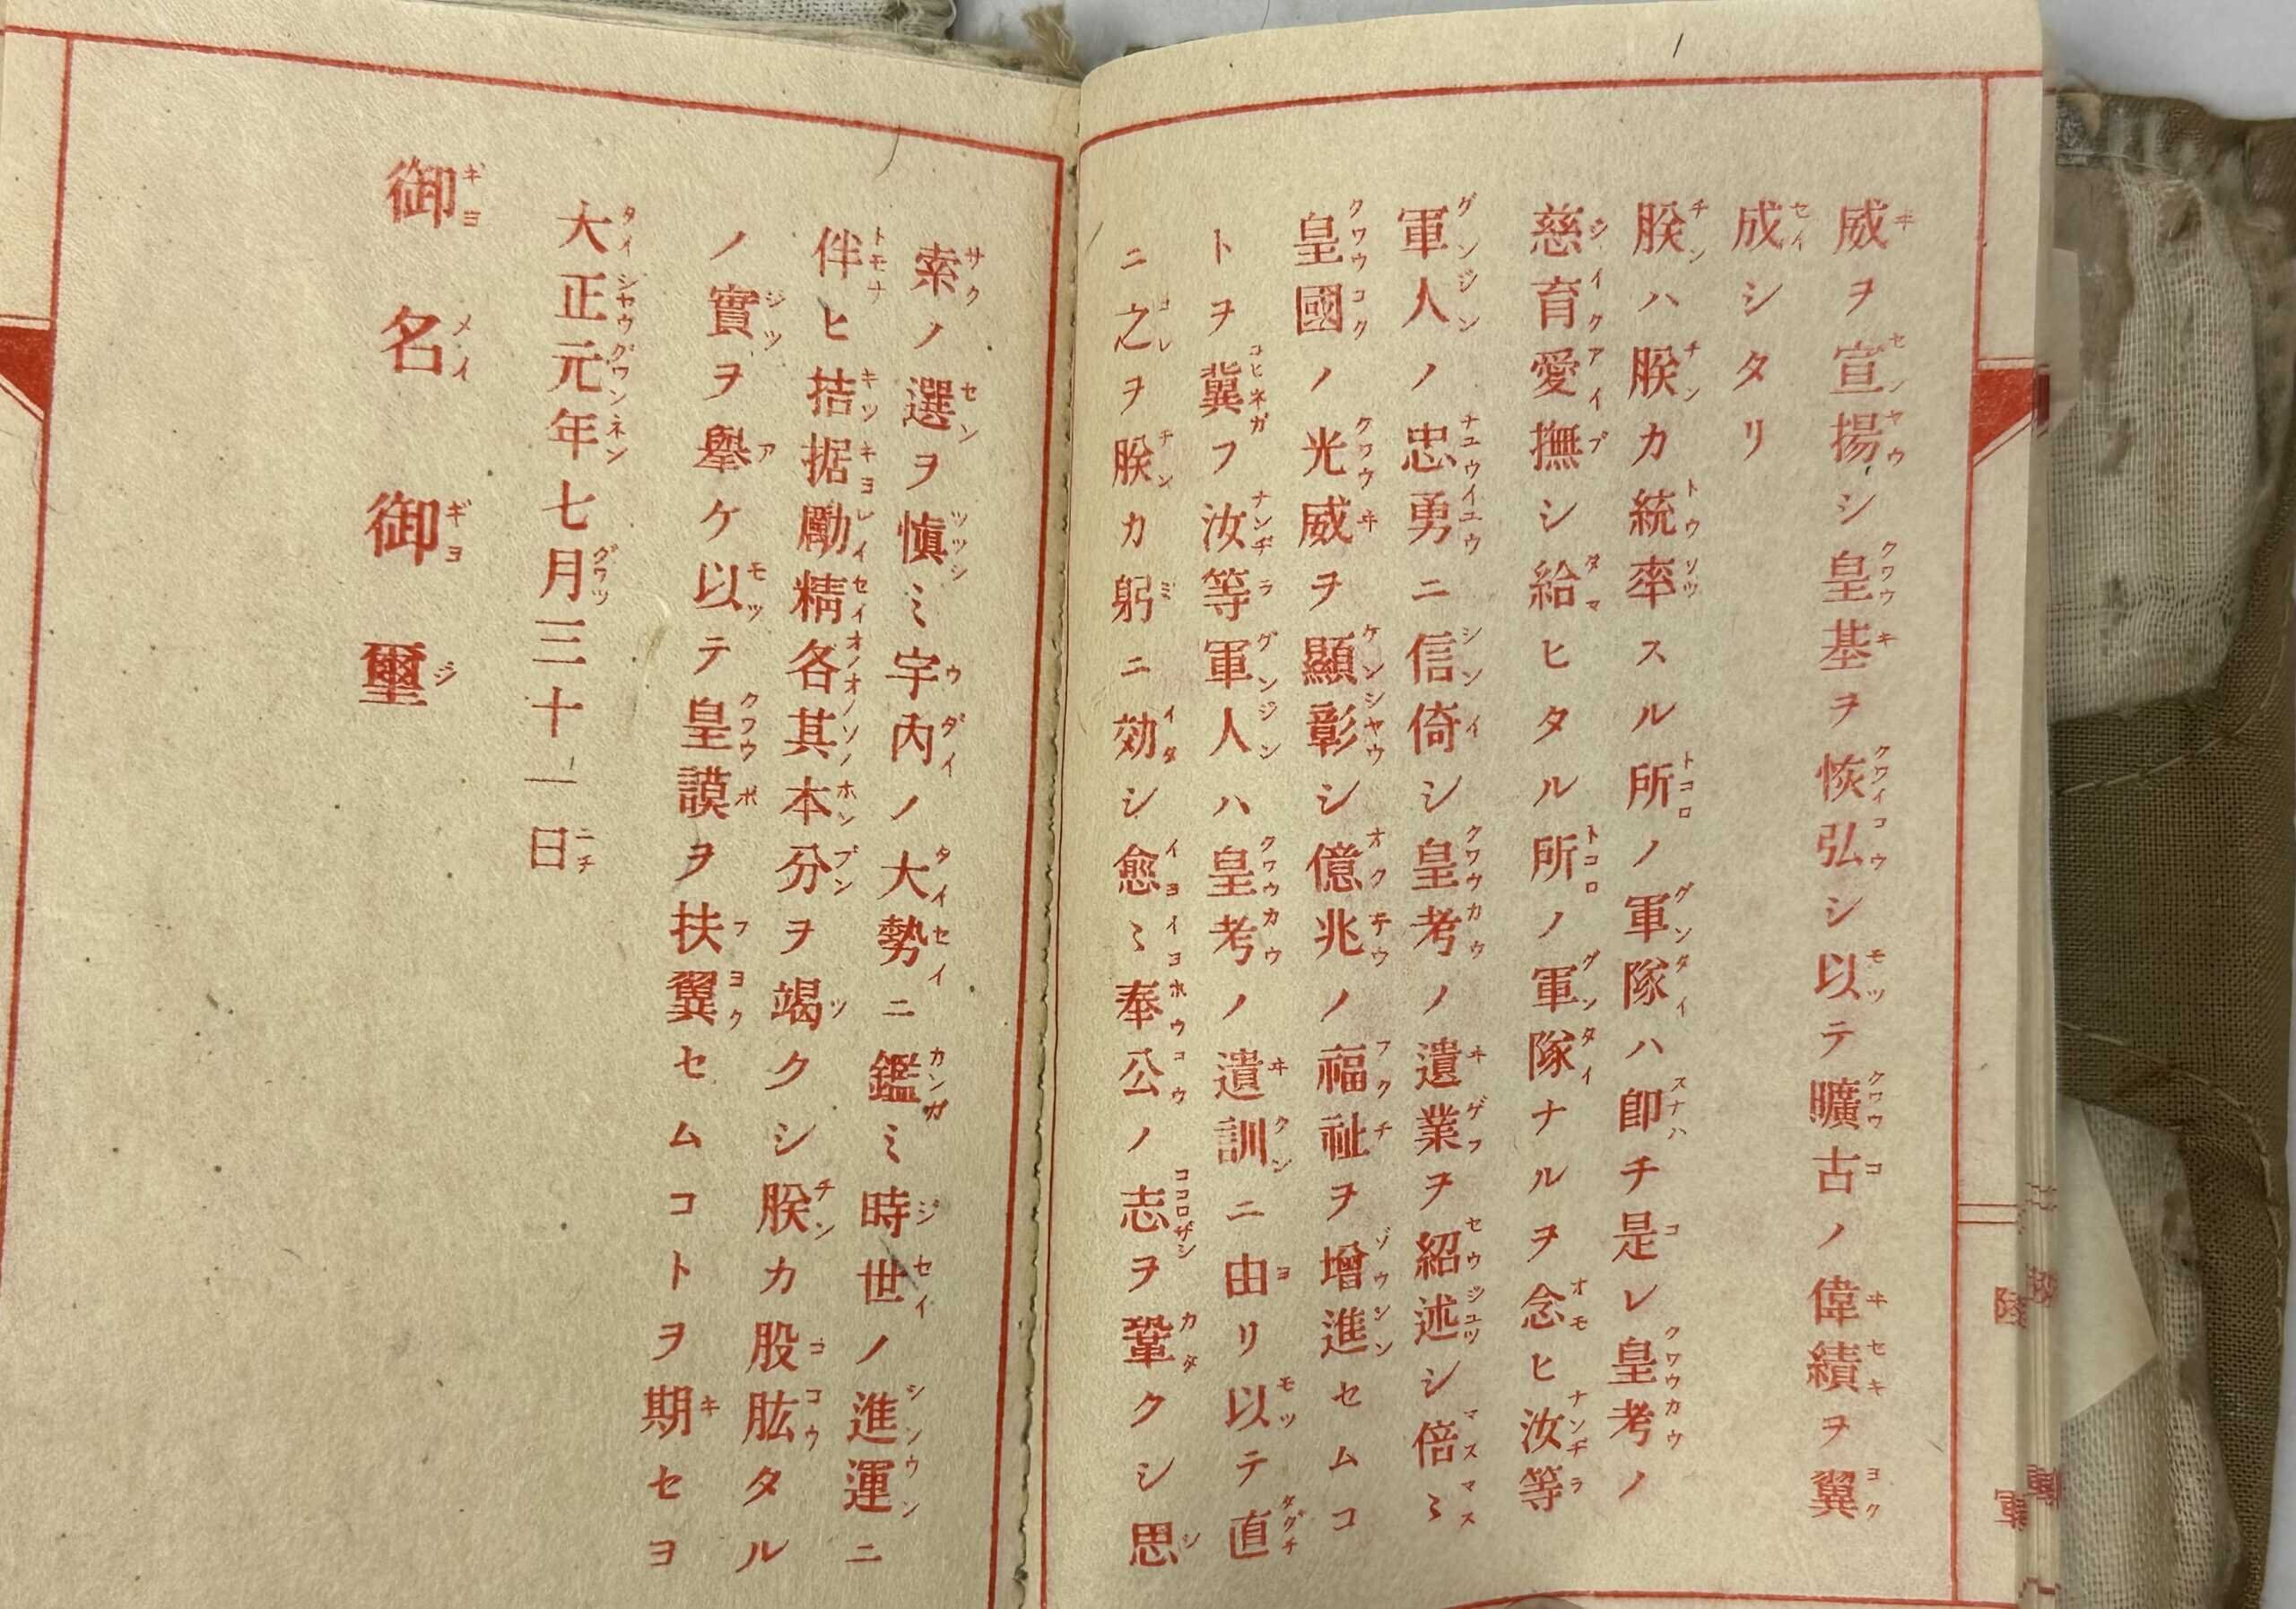 威ヲ宣揚シ皇基ヲ恢弘シ以テ曠古ノ偉績ヲ翼
成シタリ
朕ハ朕カ統率スル所ノ軍隊ハ卽チ是レ皇考ノ
慈育愛撫シ給ヒタル所ノ軍隊ナルヲ念ヒ汝等
軍人ノ忠勇ニ信倚シ皇考ノ遺業ヲ紹述シ倍〻
皇國ノ光威ヲ顯彰シ億兆ノ福祉ヲ增進セムコ
トヲ冀フ汝等軍人ハ皇考ノ遺訓ニ由リ以テ直
ニ之ヲ朕カ躬ニ効シ愈〻奉公ノ志ヲ鞏クシ思
索ノ選ヲ愼ミ宇內ノ大勢ニ鑑ミ時世ノ進運ニ
伴ヒ拮据勵精各其本分ヲ竭クシ朕カ股肱タル
ノ實ヲ擧ケ以テ皇謨ヲ扶翼セムコトヲ期セヨ
大正元年七月三十一日
御名御璽
陸軍